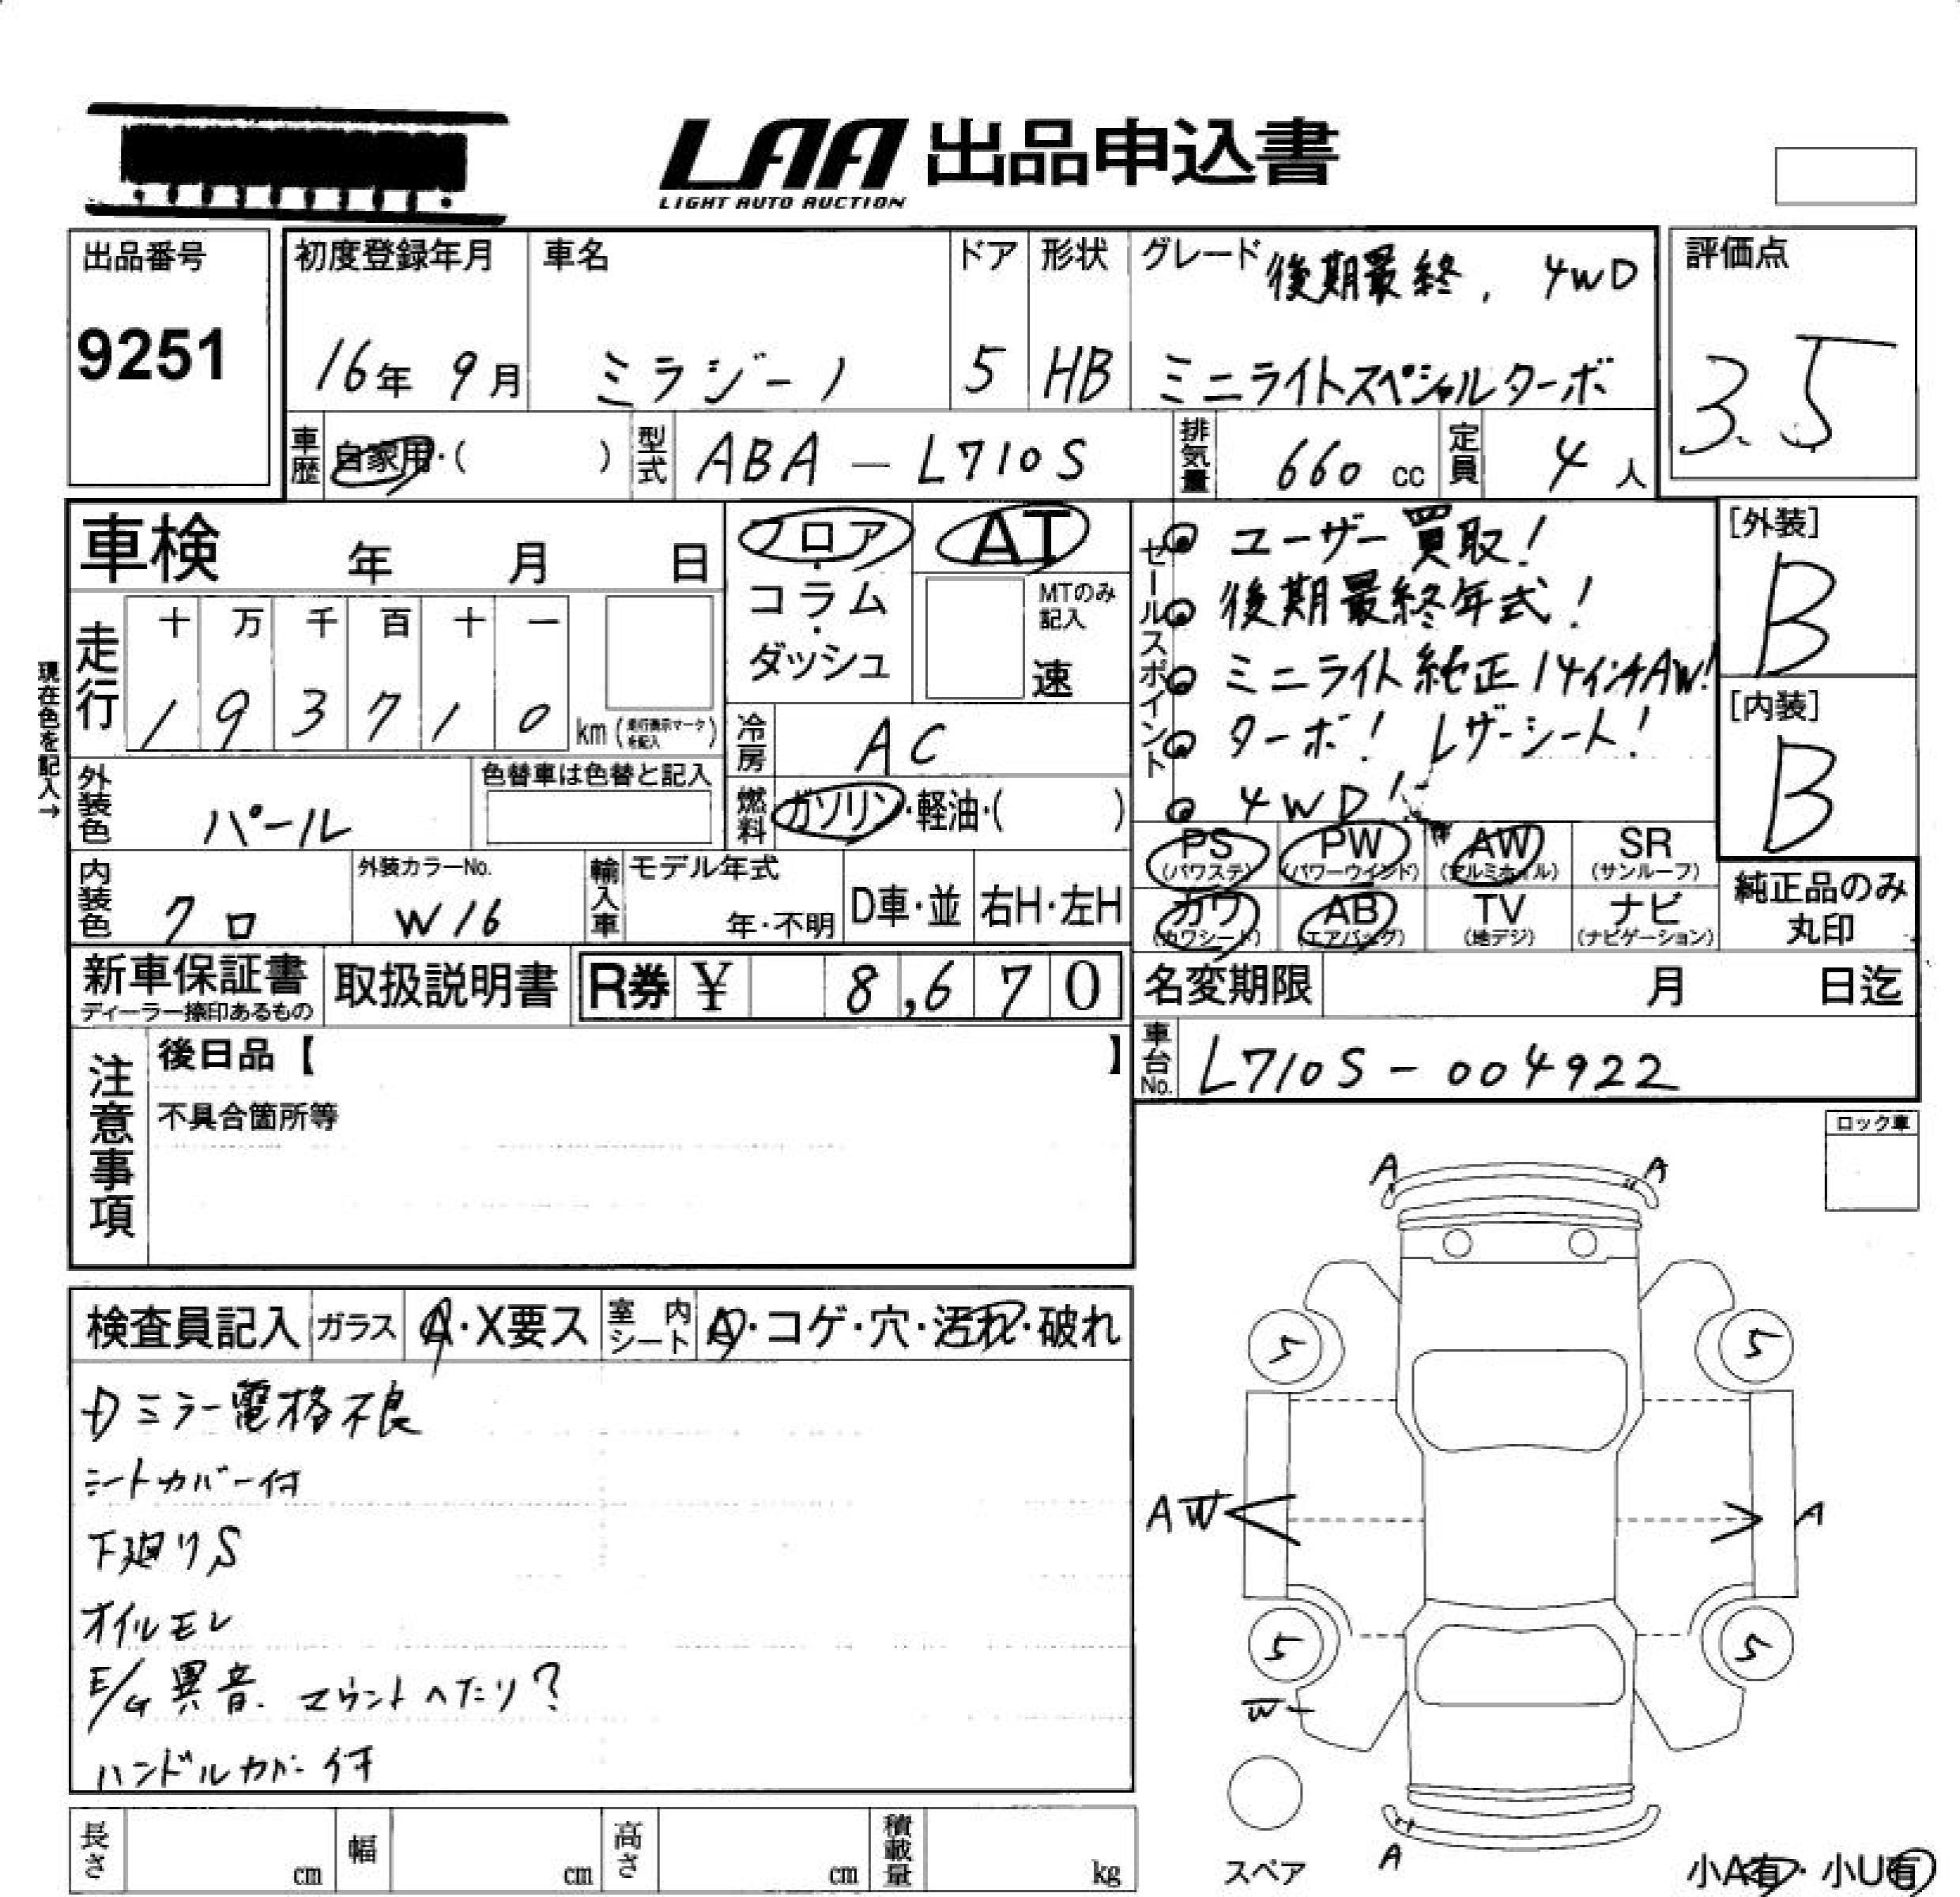 LAA 出品申込書
LIGHT AUTO AUCTION
出品番号
9251
初度登録年月
16年 9月
車名
ミラジーノ
ドア
5
形状
HB
グレード 後期最終, 4WD
ミニライトスペシャルターボ
評価点
3.5
車歴 自家用・( )
型式 ABA-L710S
排気量 660 cc
定員 4 人
車検 年 月 日
フロア・コラム・ダッシュ
AT
MTのみ記入
速
走行
十 万 千 百 十 一
1 9 3 7 1 0 km (走行表示マークを記入)
現在色を記入→
冷房 AC
燃料 ガソリン・軽油・( )
外装色 パール
色替車は色替と記入
内装色 クロ
外装カラーNo. W16
輸入車
モデル年式
年・不明
D車・並
右H・左H
セールスポイント
ユーザー買取!
後期最終年式!
ミニライト純正14インチAW!
ターボ! レザーシート!
4WD!
[外装]
B
[内装]
B
PS (パワステ) PW (パワーウインド) AW (アルミホイル) SR (サンルーフ)
カワ (カワシート) AB (エアバッグ) TV (地デジ) ナビ (ナビゲーション)
純正品のみ
丸印
新車保証書
ディーラー捺印あるもの
取扱説明書
R券 ¥ 8,670
名変期限 月 日迄
車台No. L710S-004922
注意事項
後日品【 】
不具合箇所等
ロック車
検査員記入 ガラス A・X要ス 室内シート A・コゲ・穴・汚れ・破れ
Dミラー電格不良
シートカバー付
下廻りS
オイルモレ
E/G異音. マウントへたり?
ハンドルカバー付
A A
5 5
AW A
5 5
W
A
スペア
小A有・小U有
長さ cm
幅 cm
高さ cm
積載量 kg